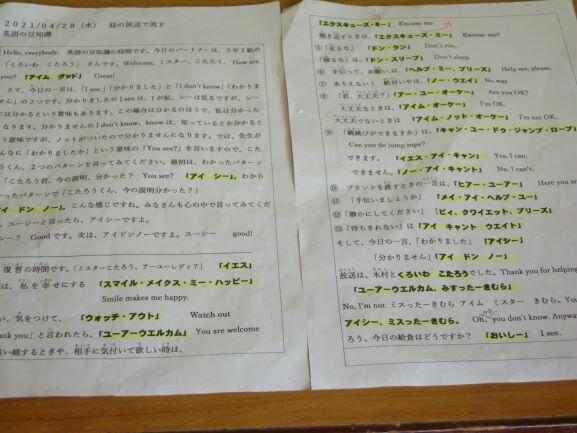 2021/04/28（水） 昼の放送で流す
英語の豆知識
Hello, everybody. 英語の豆知識の時間です。今日のパートナーは、5年2組の
「くろいわ こたろう」 さんです。Welcome, ミスター、こたろう. How are
you? 「アイム グッド」 Great!
さて、今日の一言は、「I see.」「分かりました」と「I don't know」「わかりま
せん」の2つです。分かりましたの I see は、I が私、シーは見るですが、シー
には分かるという意味もあります。この場合は分かるのほうで、私は分かった
なります。分かりませんの I don't know、know は、知っているとか分かると
う意味ですが、ノットがついたので分かりませんになります。では、先生が
んなに「わかりましたか」という意味の「You see?」を言いますので、こた
うくん、2つのパターンを言ってみてください。最初は、わかったパターン
「こたろう君、今の説明、分かった？ You see? 「アイ シー」、わから
かったパターンで「こたろうくん、今の説明分かった？」
イ ドン ノー」、こんな感じですね。みなさんも心の中で言ってみてくだ
、ユーシーと言ったら、アイシーですよ。
シー？ Good です。次は、アイドンノーですよ。ユーシー good!
復習の時間です。「ミスターこたろう、アーユーレディ？」 「イエス」
は、私を幸せにする 「スマイル・メイクス・ミー・ハッピー」
Smile makes me happy.
い、気をつけて、「ウォッチ・アウト」 Watch out
ank you」と言われたら、「ユーアーウエルカム」 You are welcome
い越するときや、相手に気付いて欲しい時は、
「エクスキューズ・ミー」 Excuse me
聞き返すときは、エクスキューズ・ミー Excuse me?
⑤ 「走るな」「ドン・ラン」 Don't run.
「寝るな」は、「ドン・スリープ」 Don't sleep.
⑥ 手伝って、お願い、は、「ヘルプ・ミー、プリーズ」 Help me, please.
⑦ ありえない！ 絶対いやは、「ノー・ウェイ」 No way
⑧ 「君、大丈夫？」「アー・ユー・オーケー」 Are you OK?
大丈夫なときは、「アイム・オーケー」 I'm OK.
大丈夫でないときは、「アイム・ノット・オーケー」 I'm not OK.
⑨ 「縄跳びができますか」は、「キャン・ユー・ドゥ・ジャンプ・ロープ」
Can you do jump rope?
できます。 「イエス・アイ・キャン」 Yes, I can.
できません。 「ノー・アイ・キャント」 No, I can't.
⑩ プリントを渡すときの一言は、「ヒアー・ユーアー」 Here you are
⑪ 「手伝いましょうか」「メイ・アイ・ヘルプ・ユー」
⑫ 「静かにしてください」「ビィ、クワイエット、プリーズ」
⑬ 「待ちきれない」は「アイ キャント ウエイト」
そして、今日の一言、「わかりました」「アイシー」
「分かりません」「アイ ドン ノー」
放送は、木村とくろいわ こたろうでした。Thank you for helping
「ユーアーウエルカム、みすったーきむら」
No, I'm not ミスったーきむら アイム ミスター きむら、You
アイシー、ミスったーきむら。 Oh, you don't know. Anyway
ろう、今日の給食はどうですか？ 「おいしー」 I see.